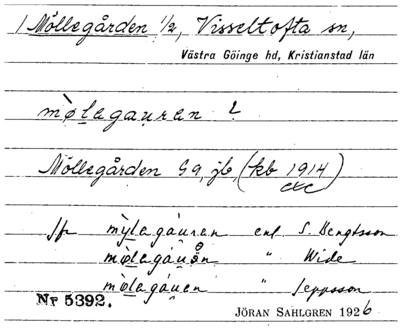 Möllegården 1/2, Visseltofta sn,
Västra Göinge hd, Kristianstad län
mø̀lagau̯ran 2
Möllegården Ga, jb, (kb 1914)
etc
jfr mỳlagáu̯ran enl S. Bengtsson
mø̀lagáu̯ån " Wide
mø̀lagáu̯en " Jeppsson
Nr 5392.
JÖRAN SAHLGREN 1926